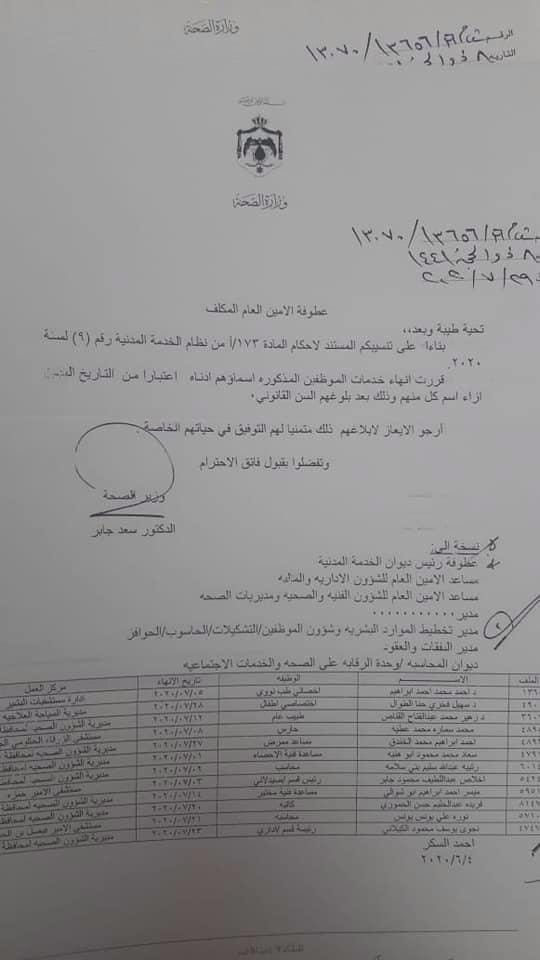 وزارة الصحة
الرقم م ش/٨١/١٣٦٥٦/١٣٠٧٠
التاريخ ٨ ذو الحجة
وزارة الصحة
١٣٠٧٠/١٣٦٥٦/
ذو الحجة ١٤٤١
٢٠٢٠/٧/٢٩
عطوفة الامين العام المكلف
تحية طيبة وبعد،،
بناءا على تنسيبكم المستند لاحكام المادة ١٧٣/أ من نظام الخدمة المدنية رقم (٩) لسنة
٢٠٢٠.
قررت انهاء خدمات الموظفين المذكوره اسماؤهم ادناه اعتبارا من التاريخ المبين
ازاء اسم كل منهم وذلك بعد بلوغهم السن القانوني.
أرجو الايعاز لابلاغهم ذلك متمنيا لهم التوفيق في حياتهم الخاصة.
وتفضلوا بقبول فائق الاحترام
وزير الصحة
الدكتور سعد جابر
نسخة الى:
عطوفة رئيس ديوان الخدمة المدنية
مساعد الامين العام للشؤون الاداريه والماليه
مساعد الامين العام للشؤون الفنيه والصحيه ومديريات الصحه
مدير...........
مدير تخطيط الموارد البشريه وشؤون الموظفين/التشكيلات/الحاسوب/الحوافز
مدير النفقات والعقود
ديوان المحاسبه /وحدة الرقابه على الصحه والخدمات الاجتماعيه
الملف الاســـم الوظيفه تاريخ الانهاء مركز العمل
١٣٦ د احمد محمد احمد ابراهيم اخصائي طب نووي ٢٠٢٠/٠٧/٠٥ ادارة مستشفيات البشير
٤٩٠ د سهيل فخري حنا الطوال اختصاصي اطفال ٢٠٢٠/٠٧/٢٨ مديرية السياحة العلاجيه
٣٦٠ د زهير محمد عبدالفتاح القناص طبيب عام ٢٠٢٠/٠٧/١٢ مديرية الشؤون الصحيه لمحافظة
٤٨٩ محمد بصاره محمد عطيه حارس ٢٠٢٠/٠٧/٠٨ مستشفى الزرقاء الحكومي
٤٨٩ احمد ابراهيم محمد الخندق مساعد ممرض ٢٠٢٠/٠٧/٢٧ مديرية الشؤون الصحيه لمحافظة
٤٧٩ سعاد محمد محمود ابو هنيه مساعدة فنية الاحصاء ٢٠٢٠/٠٧/٠١ مديرية الشؤون الصحيه لمحافظة
٦٠١٤ رتيبه عبدالله سليم بني سلامه محاسب ٢٠٢٠/٠٧/٠٢ مديرية الشؤون الصحيه لمحافظة
٥٤٢٤ اخلاص عبداللطيف محمود جابر رئيس قسم ٢٠٢٠/٠٧/٠٣
٥٩٥١ ميسر احمد ابراهيم ابو شوالي مساعدة فنية مختبر ٢٠٢٠/٠٧/١٤ مستشفى الامير حمزه
٨١٤٧ فريده عبدالحليم حسن الحموري كاتبه ٢٠٢٠/٠٧/٢٠ مديرية الشؤون الصحيه لمحافظة
٥٧١٠ نوره علي يونس يونس محاسبه ٢٠٢٠/٠٧/٢١ مستشفى الامير فيصل بن
٤٧٤٧ نجوى يوسف محمود الكيلاني رئيسة قسم/اداري ٢٠٢٠/٠٧/٢٣ مديرية الشؤون الصحيه لمحافظة
احمد السكر
٢٠٢٠/٦/٤